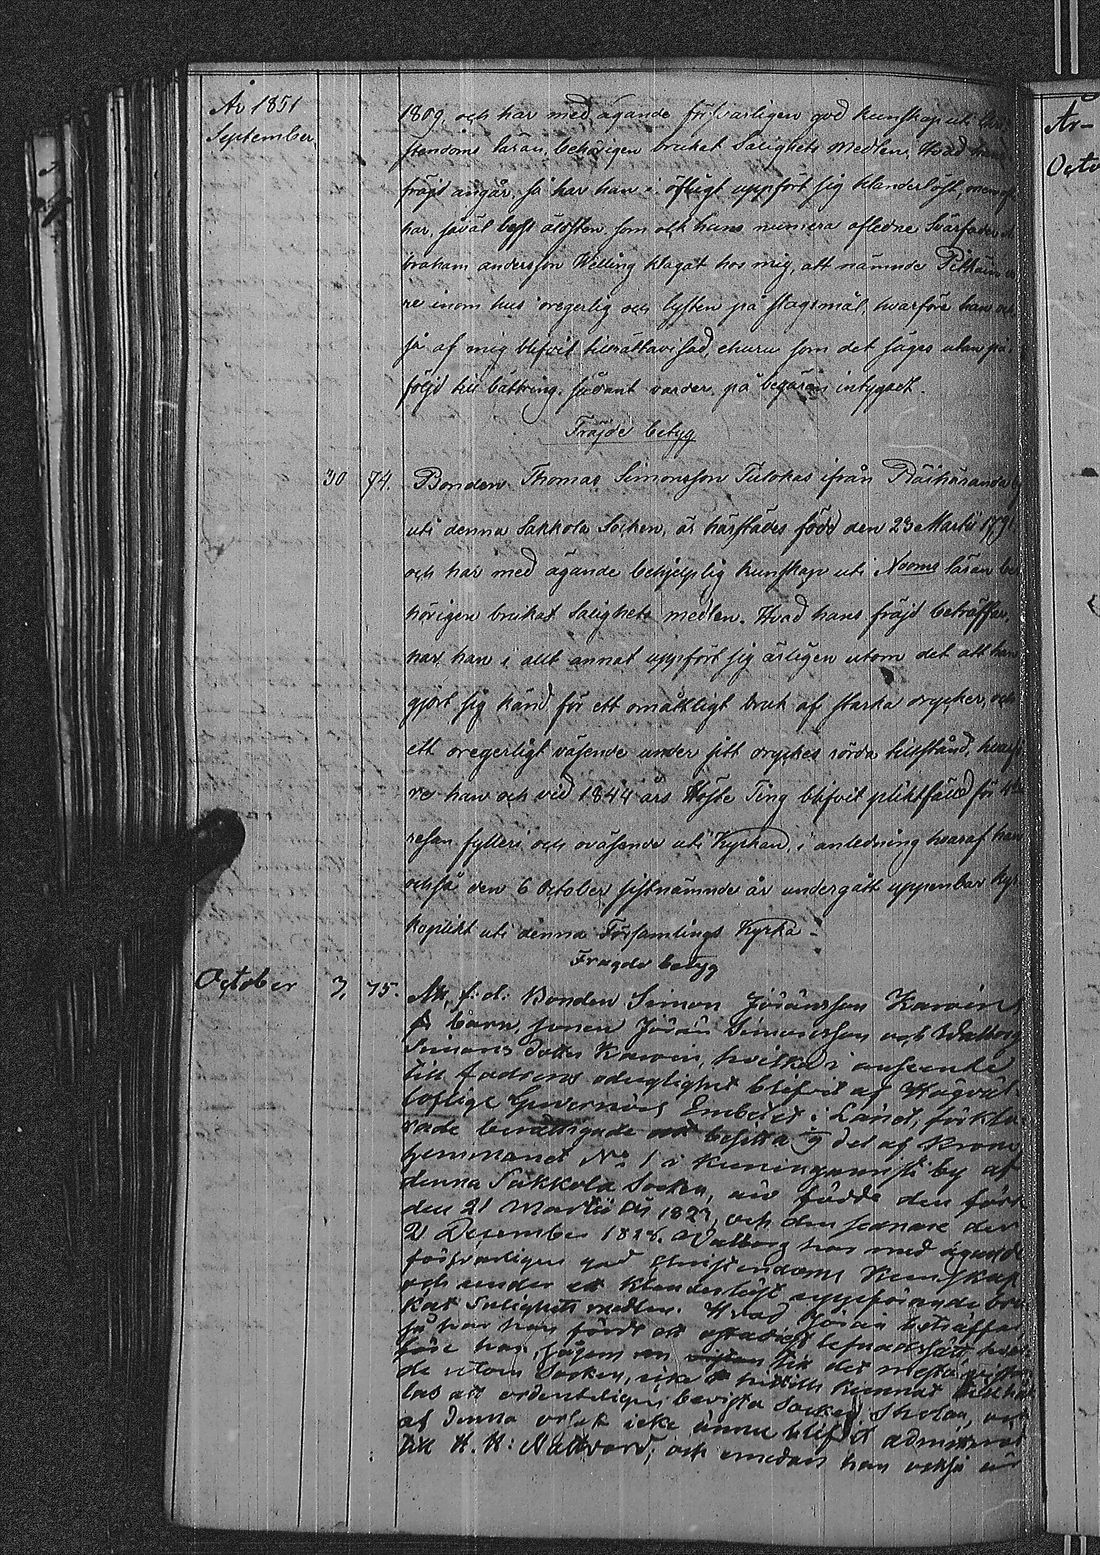 År 1851
September
1809 och har med ägande försvarligen god kunskap uti
stendoms läran, behörigen brukat Salighets medlen. Hvad
fräjd angår, så har han i öfrigt uppfört sig klanderlöst, men
har, såväl som ock hans numera aflidne Svärfader
braham Andersson Willing klagat hos mig, att nämnde
re inom hus oregerlig och lysten på slagsmål, hvarföre han
så af mig blifvit tillrättavisad, ehuru som det säges utan på
följd till bättring. Sådant varder på begäran intygadt.
Fräjde betyg
30 74. Bonden Thomas Simonsson Tulokas ifrån
uti denna Sakkola Socken, är härstädes född den 23 Martii 1791
och har med ägande behjelplig kunskap uti Noomes läran be
hörigen brukat Salighets medlen. Hvad hans fräjd beträffar,
har han i allt annat uppfört sig ärligen utom det att han
gjort sig känd för ett omåttligt bruk af starka drycker, och
ett oregerligt väsende under sitt dryckes rörda tillstånd, hvarfö
re han ock vid 1844 års Höste Ting blifvit pliktfälld för
resan fylleri och oväsende uti Kyrkan, i anledning hvaraf han
också den 6 October sistnämnde år undergått uppenbar kyr
koplikt uti denna Församlings Kyrka.
Fragde betyg
October 3, 75. Att f: d: Bonden Simon Jöransson Karvin
s barn, sonen Jöran Simonsson och Walborg
Simons dotter Karvin, hvilka i anseende
till fadrens oduglighet blifvit af Högväl
loflige Guvernörs Embetet i Länet, förkla
rade berättigade att besitta det af Krono
hemmanet No 1 i Kuningannisi by af
denna Sakkola Socken, äro födde den förr
den 21 Martii År 1823, och den senare den
2 December 1828. Walborg har med ägande
försvarligen god Christendoms Kunskap
och under ett klanderlöst uppförande bru
kat Salighets medlen. Hvad Jöran beträffar
så har han fördt ett ostadigt lefnadssätt hvar
före han, såsom en till det mesta vistan
de utom Socken, icke kunnat
las att ordenteligen bevista Socken Skolan, och
af denna orsak icke ännu blifvit admitterad
till H. H: Nattvard; och emedan han också
Ar-
Octo